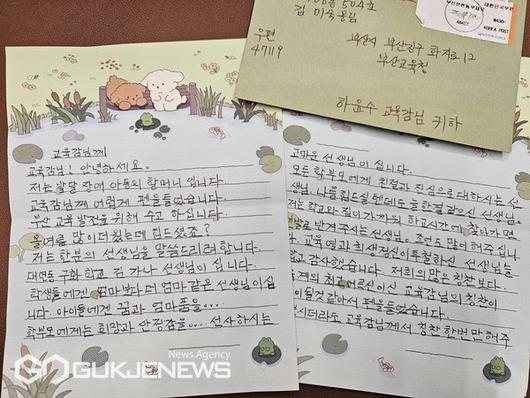 504호
김 미숙 올림
우편
47119
부산시 부산진구 화지로 12
부산교육청
하윤수 교육감님 귀하
대한민국우표
KOREA POST
교육감님께
교육감님! 안녕하세요.
저는 발달 장애 아동의 할머니 입니다.
교육감님께 어렵게 펜을 들었습니다.
부산 교육 발전을 위해 수고 하십니다.
올여름 많이 더웠는데 힘드셨죠?
저는 학부의 선생님을 말씀드리려 합니다.
대연동 구화 학교 김 가나 선생님이 십니다.
학생들에겐 엄마보다 더 엄마같은 선생님이십
니다. 아이들에겐 꿈과 엄마품을...
학부모에게는 희망과 안정감을... 선사하시는
고마운 선생님이 십니다.
모든 학부모에게 친절과 진심으로 대하시는 선
생님. 나름 힘드실텐데도 늘 한결같으신 선생님.
저는 학교와 집이 가까워 하교시간에 찾아가면
받겨주시는 선생님. 조언도 많이 해주십
교육열과 희생정신이 투철하신 선생님들
감사했습니다. 저희의 많은 칭찬보다
계의 최고 어르신이신 교육감님의 칭찬이
이될것같아서 펜을 들었습니다.
시더라도 교육감님께서 칭찬 한번만 해주
News Agency
GUKJENEWS